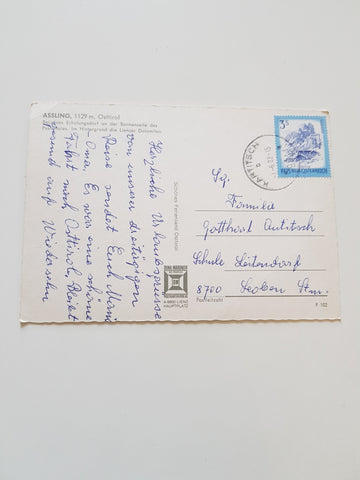 ASSLING, 1129 m, Osttirol
Erholungsdorf an der Sonnenseite des
Im Hintergrund die Lienzer Dolomiten
Herzliche Urlaubsgrüsse
von unserer dreitägigen
Reise sendet Euch Mimi
Oma. Es war eine schöne
Fahrt nach Osttirol. Bleibt
gesund auf Wiedersehn
Schönes Ferienland Osttirol
A-9900 LIENZ
HAUPTPLATZ
3 S
REPUBLIK ÖSTERREICH
KARTITSCH
Fg.
Familie
Gotthard
Schule Leitendorf
8700 Leoben Stm.
Postleitzahl
F 102